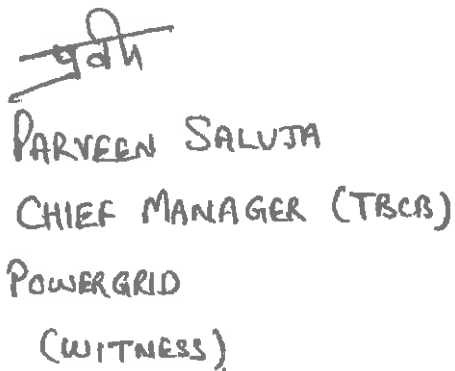 प्रवीण
PARVEEN SALUJA
CHIEF MANAGER (TBCB)
POWERGRID
(WITNESS)